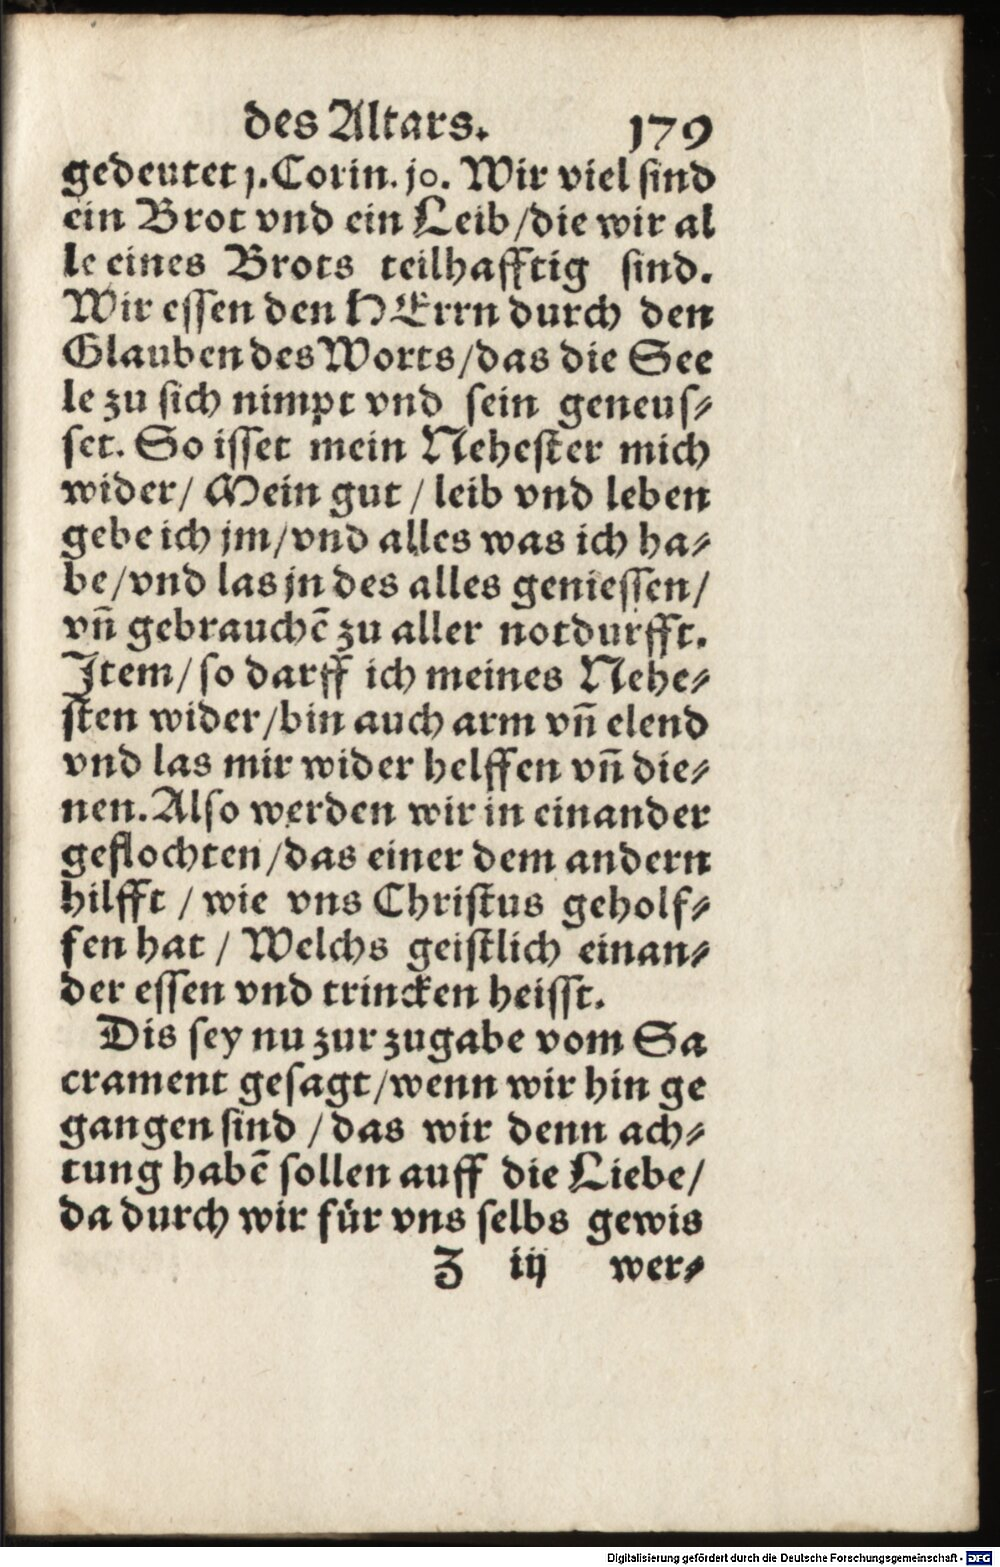 des Altars. 179
gedeutet j. Corin. jo. Wir viel sind
ein Brot vnd ein Leib/die wir al
le eines Brots teilhafftig sind.
Wir essen den HErrn durch den
Glauben des Worts/das die See
le zu sich nimpt vnd sein geneus-
set. So isset mein Nehester mich
wider/ Mein gut / leib vnd leben
gebe ich jm/vnd alles was ich ha-
be/vnd las jn des alles geniessen/
vñ gebrauchē zu aller notdurfft.
Item/ so darff ich meines Nehe-
sten wider/bin auch arm vñ elend
vnd las mir wider helffen vñ die-
nen. Also werden wir in einander
geflochten/das einer dem andern
hilfft / wie vns Christus geholf-
fen hat / Welchs geistlich einan-
der essen vnd trincken heisst.
Dis sey nu zur zugabe vom Sa
crament gesagt/wenn wir hin ge
gangen sind / das wir denn ach-
tung habē sollen auff die Liebe/
da durch wir für vns selbs gewis
Z iij wer-
Digitalisierung gefördert durch die Deutsche Forschungsgemeinschaft - DFG